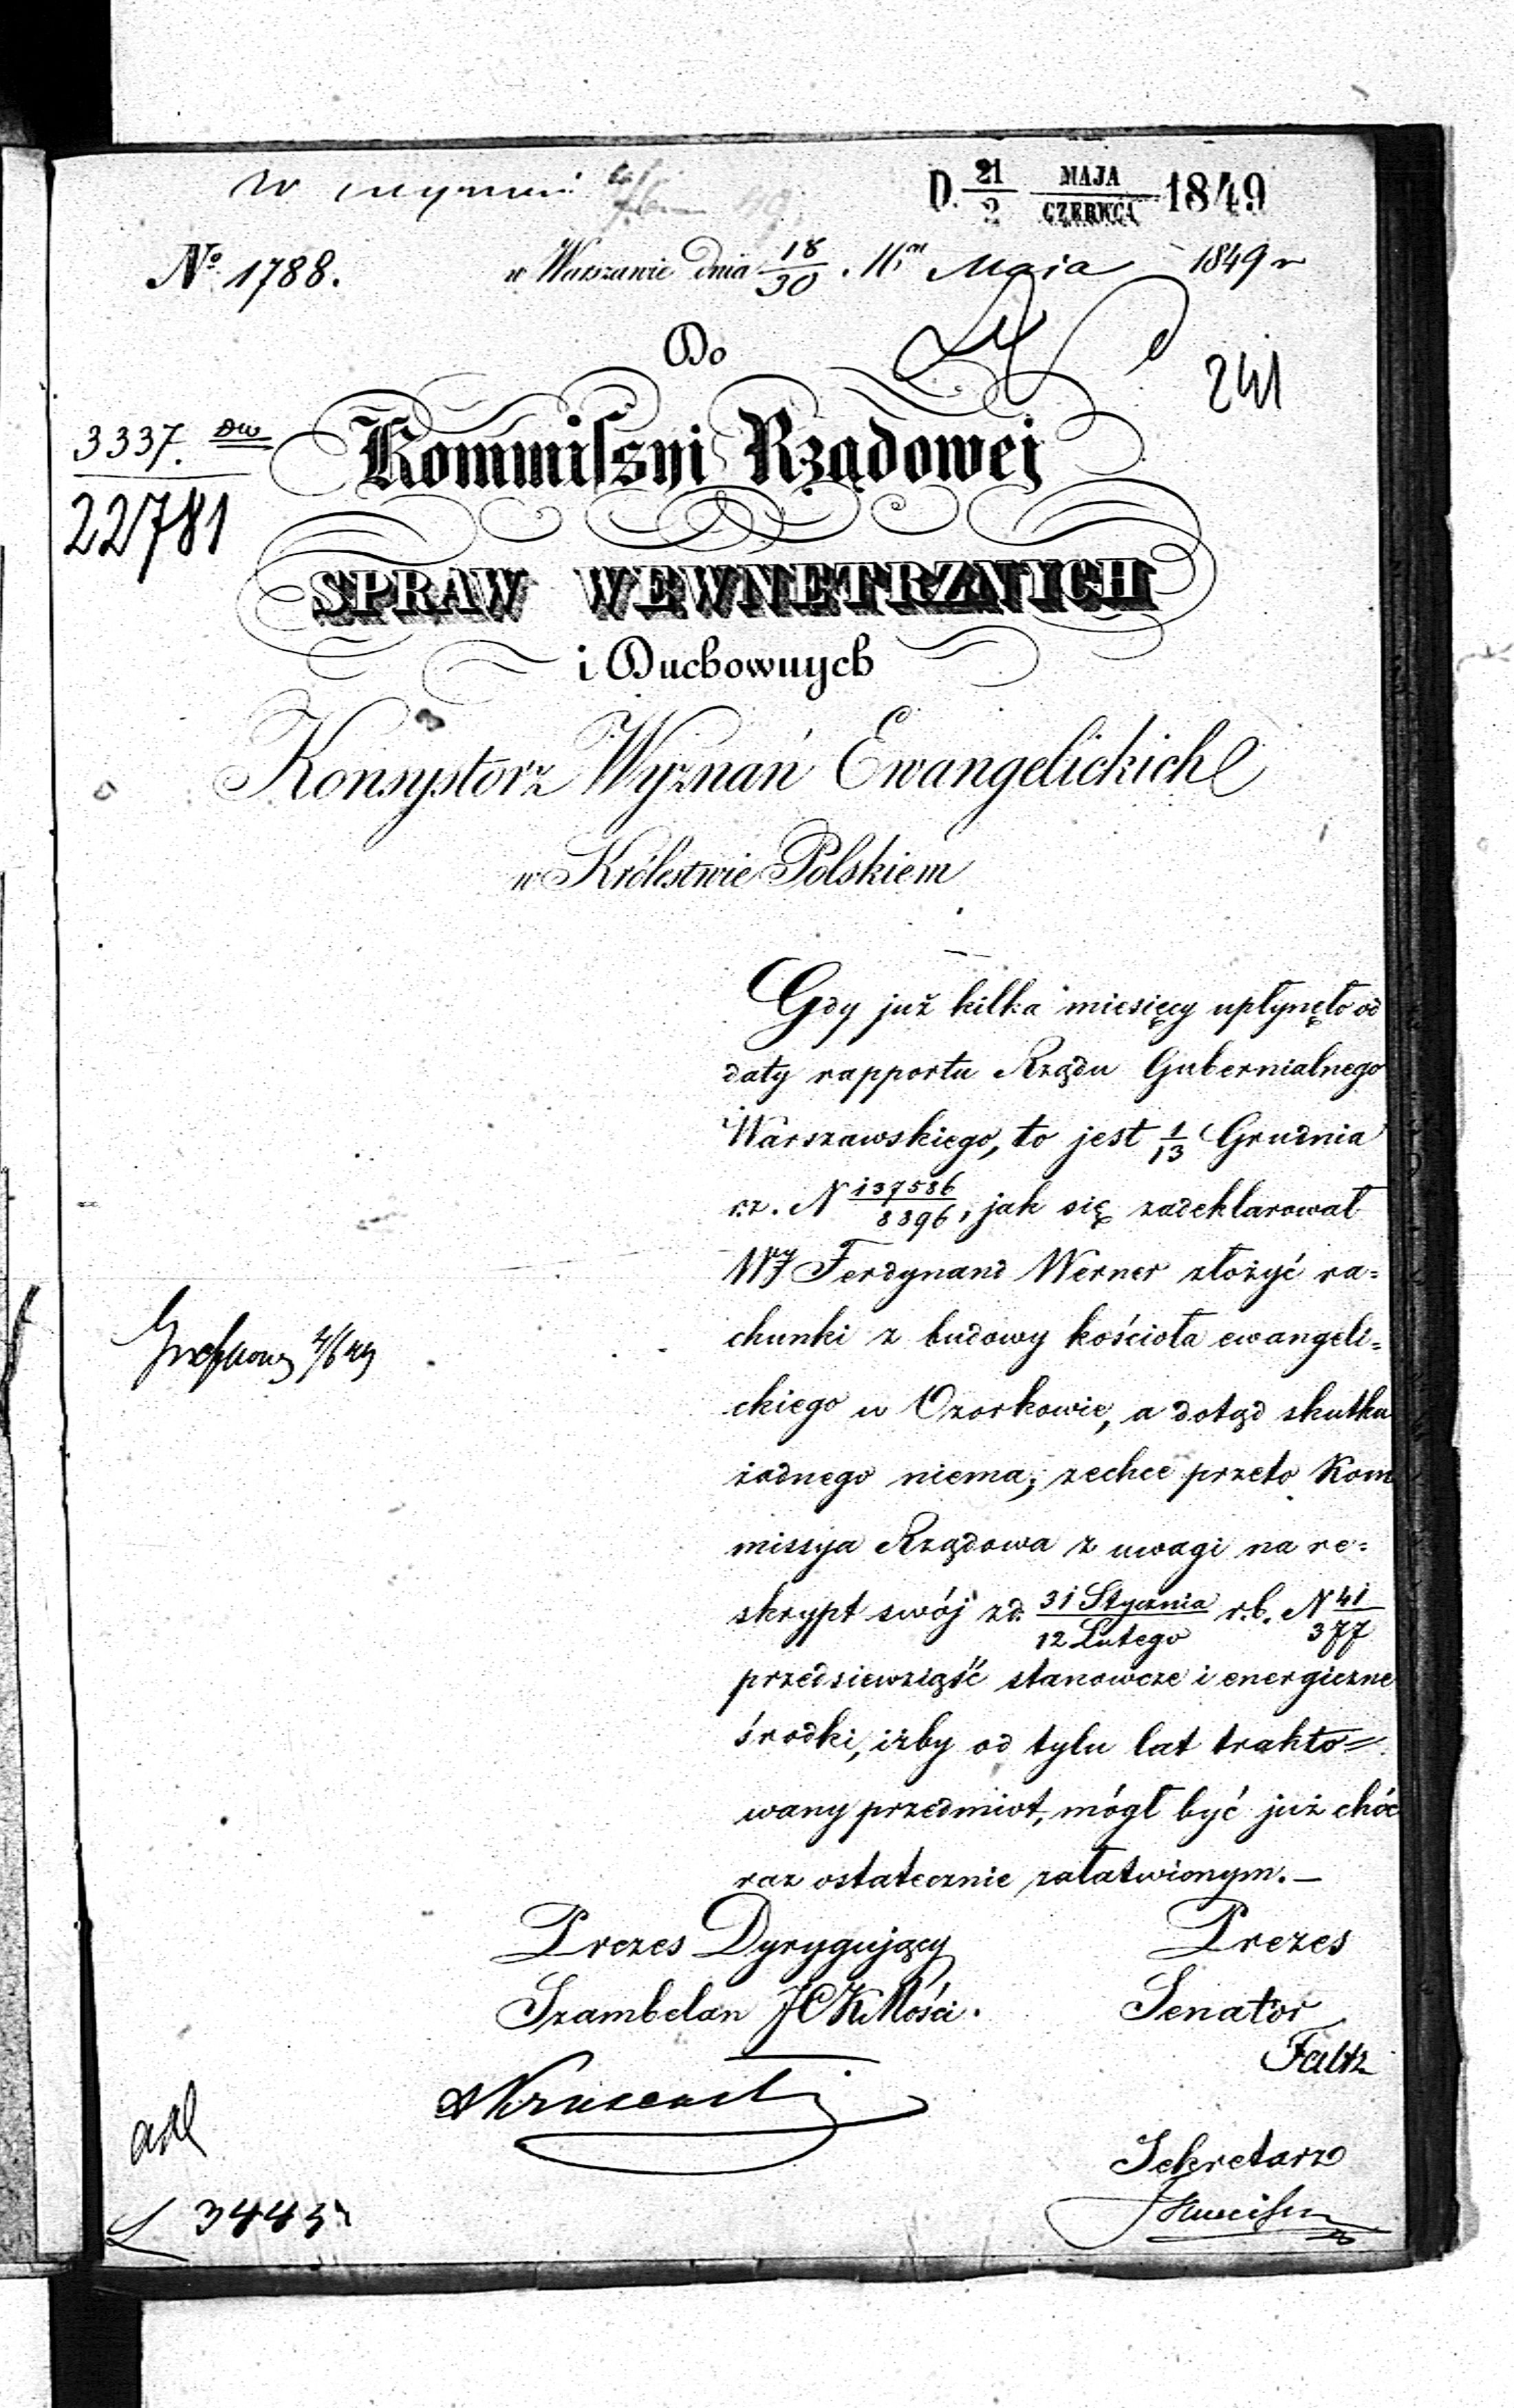 D. 21/2 MAJA/CZERWCA 1849
No 1788.
w Warszawie dnia 18/30 Mca Maja 1849 r
241
Do
3337.
22781
Kommissyi Rządowej
SPRAW WEWNETRZNYCH
i Duchownych
Konsystorz Wyznań Ewangelickich
w Królestwie Polskiem
Gdy już kilka miesięcy upłynęło od
daty rapportu Rządu Gubernialnego
Warszawskiego, to jest 1/13 Grudnia
r.z. N 137586/8396, jak się zadeklarował
WJ Ferdynand Werner złożyć ra=
chunki z budowy kościoła ewangeli=
ckiego w Ozorkowie, a dotąd skutku
żadnego niema; zechce przeto Kom
missya Rządowa z uwagi na re=
skrypt swój zd. 31 Stycznia/12 Lutego r.b. N 41/377
przedsiewziąść stanowcze i energiczne
środki, iżby od tylu lat trakto=
wany przedmiot, mógł być już choć
raz ostatecznie załatwionym.—
Prezes Dyrygujący
Szambelan JCKMości.
Prezes
Senator
Faltz
Sekretarz
add